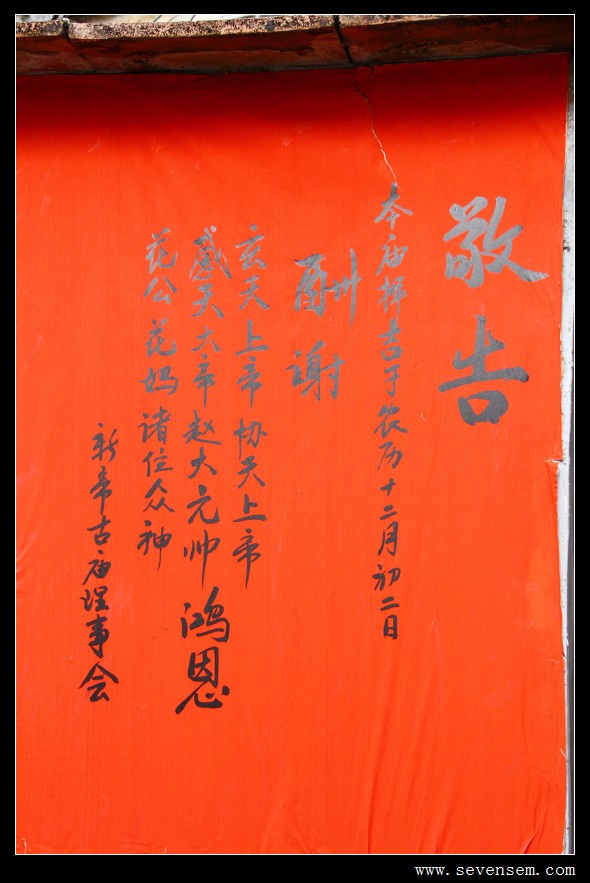 敬告
本庙择吉于农历十二月初二日
酬谢
玄天上帝协天上帝
感天大帝赵大元帅鸿恩
花公花妈诸位众神
新帝古庙理事会
www.sevensem.com